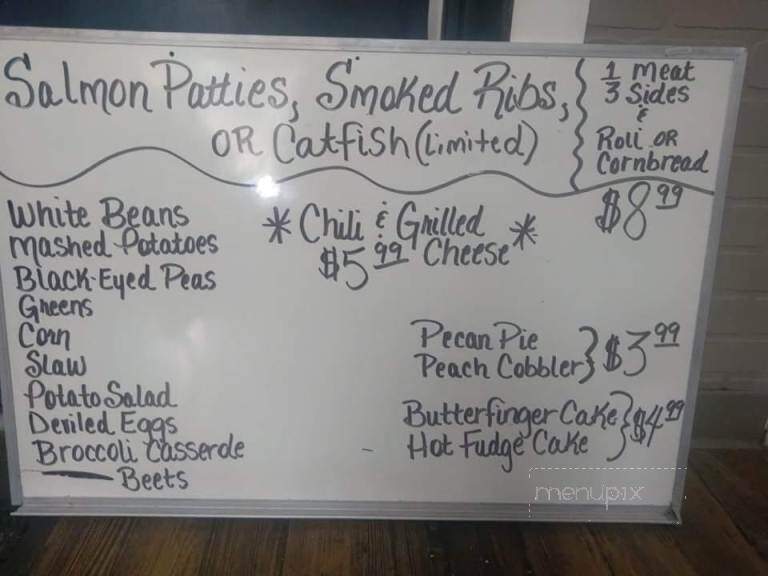 Salmon Patties, Smoked Ribs,
OR Catfish (limited)
1/3 Meat
Sides
&
Roll OR
Cornbread
$8.99
White Beans
Mashed Potatoes
Black-Eyed Peas
Greens
Corn
Slaw
Potato Salad
Deviled Eggs
Broccoli Casserole
Beets
* Chili & Grilled *
$5.99 Cheese
Pecan Pie
Peach Cobbler } $3.99
Butterfinger Cake
Hot Fudge Cake } $4.99
menupix